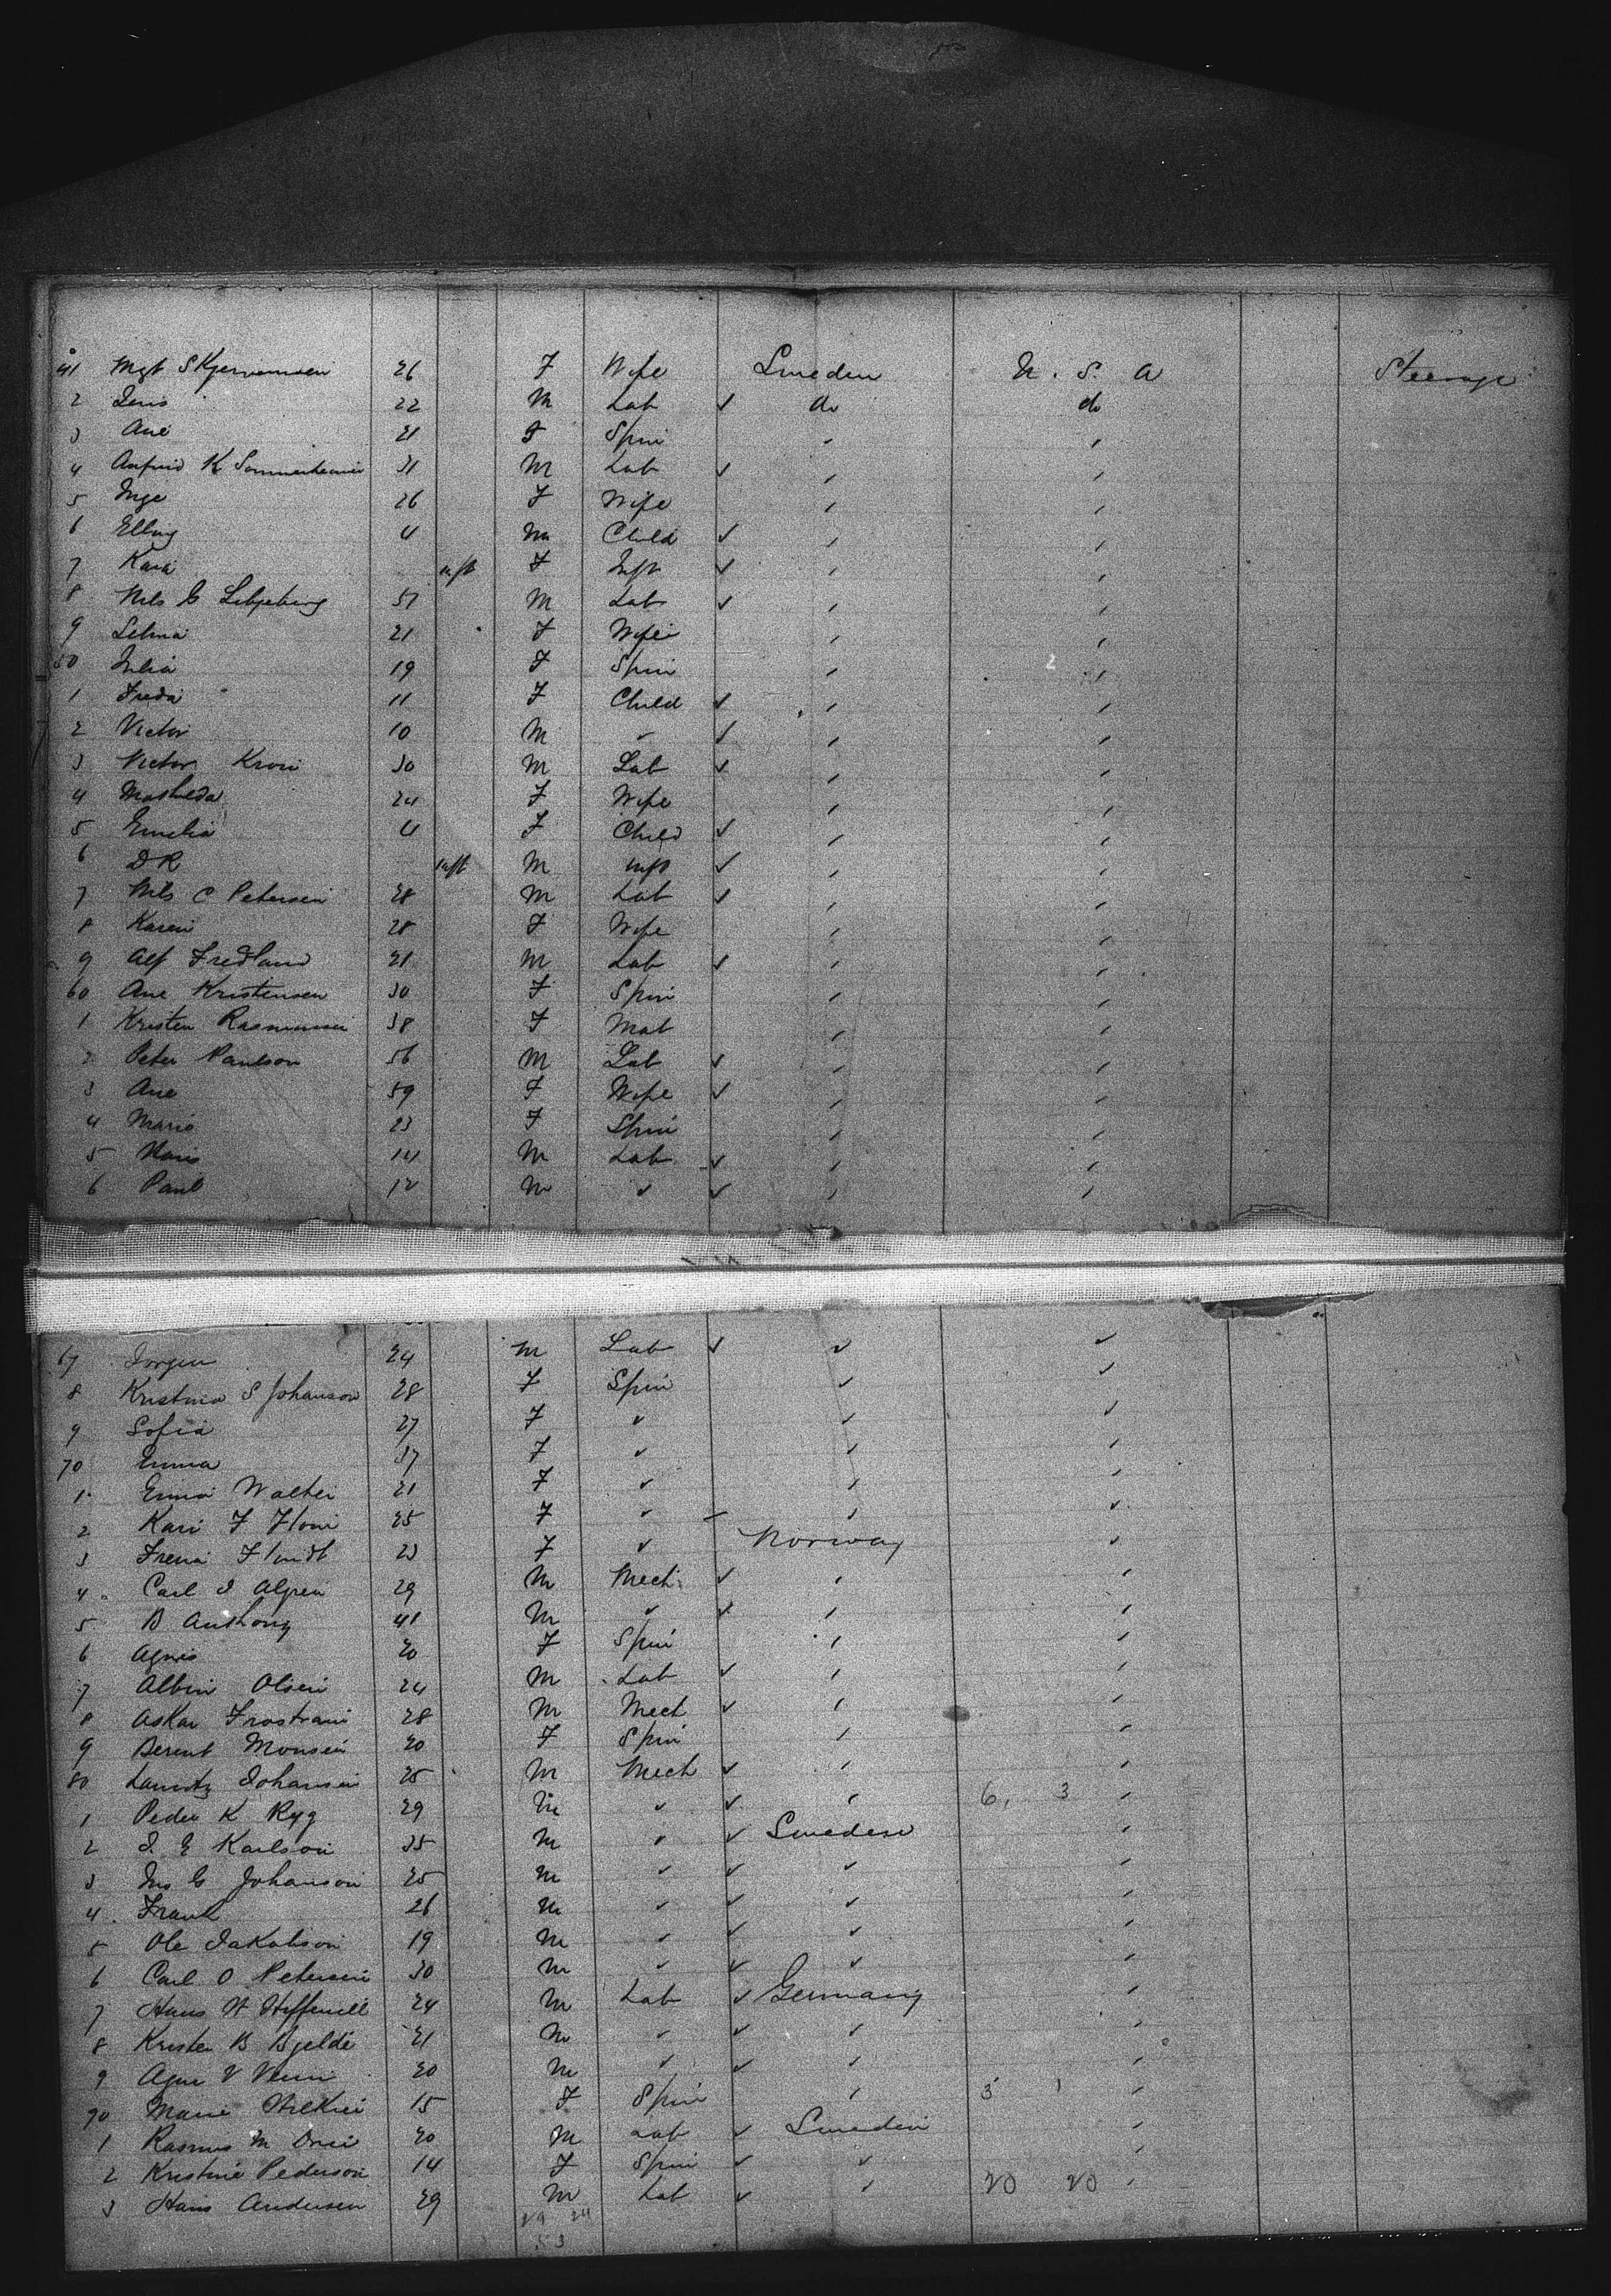 41 Mgt 26 F Wife Sweden U. S. A Steerage
2 Jens 22 M Lab ✓ do do
3 Ane 21 F Spin
4 K 31 M Lab ✓
5 Inge 26 F Wife
6 Elling 4 M Child ✓
7 inft F Inft ✓
8 Nils G 51 M Lab ✓
9 Selma 21 F Wife
50 Julia 19 F Spin
1 Freda 11 F Child ✓
2 Victor 10 M ✓
3 Victor Kron 30 M Lab ✓
4 24 F Wife
5 Emelia 4 F Child ✓
6 D R inft M inft ✓
7 Nils C Petersen 28 M Lab ✓
8 Karen 28 F Wife
9 Alf Fredland 21 M Lab ✓
60 Ane Kristensen 30 F Spin
1 Kristen Rasmussen 38 F Mat
2 Peter Paulson 56 M Lab ✓
3 Ane 59 F Wife ✓
4 Marie 23 F Spin
5 Hans 14 M Lab ✓
6 Paul 12 M ✓ ✓
67 Jorgen 24 M Lab ✓ ✓ ✓
8 Kristina S Johanson 28 F Spin ✓ ✓
9 Sofia 27 F ✓ ✓ ✓
70 Emma 37 F ✓ ✓
1 Emma Walter 21 F ✓
2 Kari F 25 F ✓ ✓
3 23 F ✓ Norway ✓
4 Carl J 29 M Mech ✓
5 B Anthony 41 M ✓ ✓
6 Agnes 20 F Spin
7 Albin Olsen 24 M Lab ✓
8 Askar 28 M Mech ✓
9 Berent Monsen 20 F Spin
80 Lauritz Johansen 25 M Mech ✓
1 Peder K Ryg 29 M ✓ ✓ 6, 3
2 J. E Karlson 35 M ✓ ✓ Sweden
3 Jno G Johanson 25 M ✓ ✓ ✓
4 Frank 26 M ✓ ✓ ✓
5 Ole Jakobson 19 M ✓ ✓ ✓
6 Carl O Petersen 30 M ✓ ✓ ✓
7 Hans 24 M Lab ✓ Germany
8 Kristen B Bjelde 21 M ✓ ✓ ✓
9 V 20 M ✓ ✓ ✓
90 Marie 15 F Spin 3 1
1 Rasmus M 20 M Lab ✓ Sweden
2 Kristine Pederson 14 F Spin ✓ ✓
3 Hans Andersen 29 M Lab ✓ 20 20
29 24
53